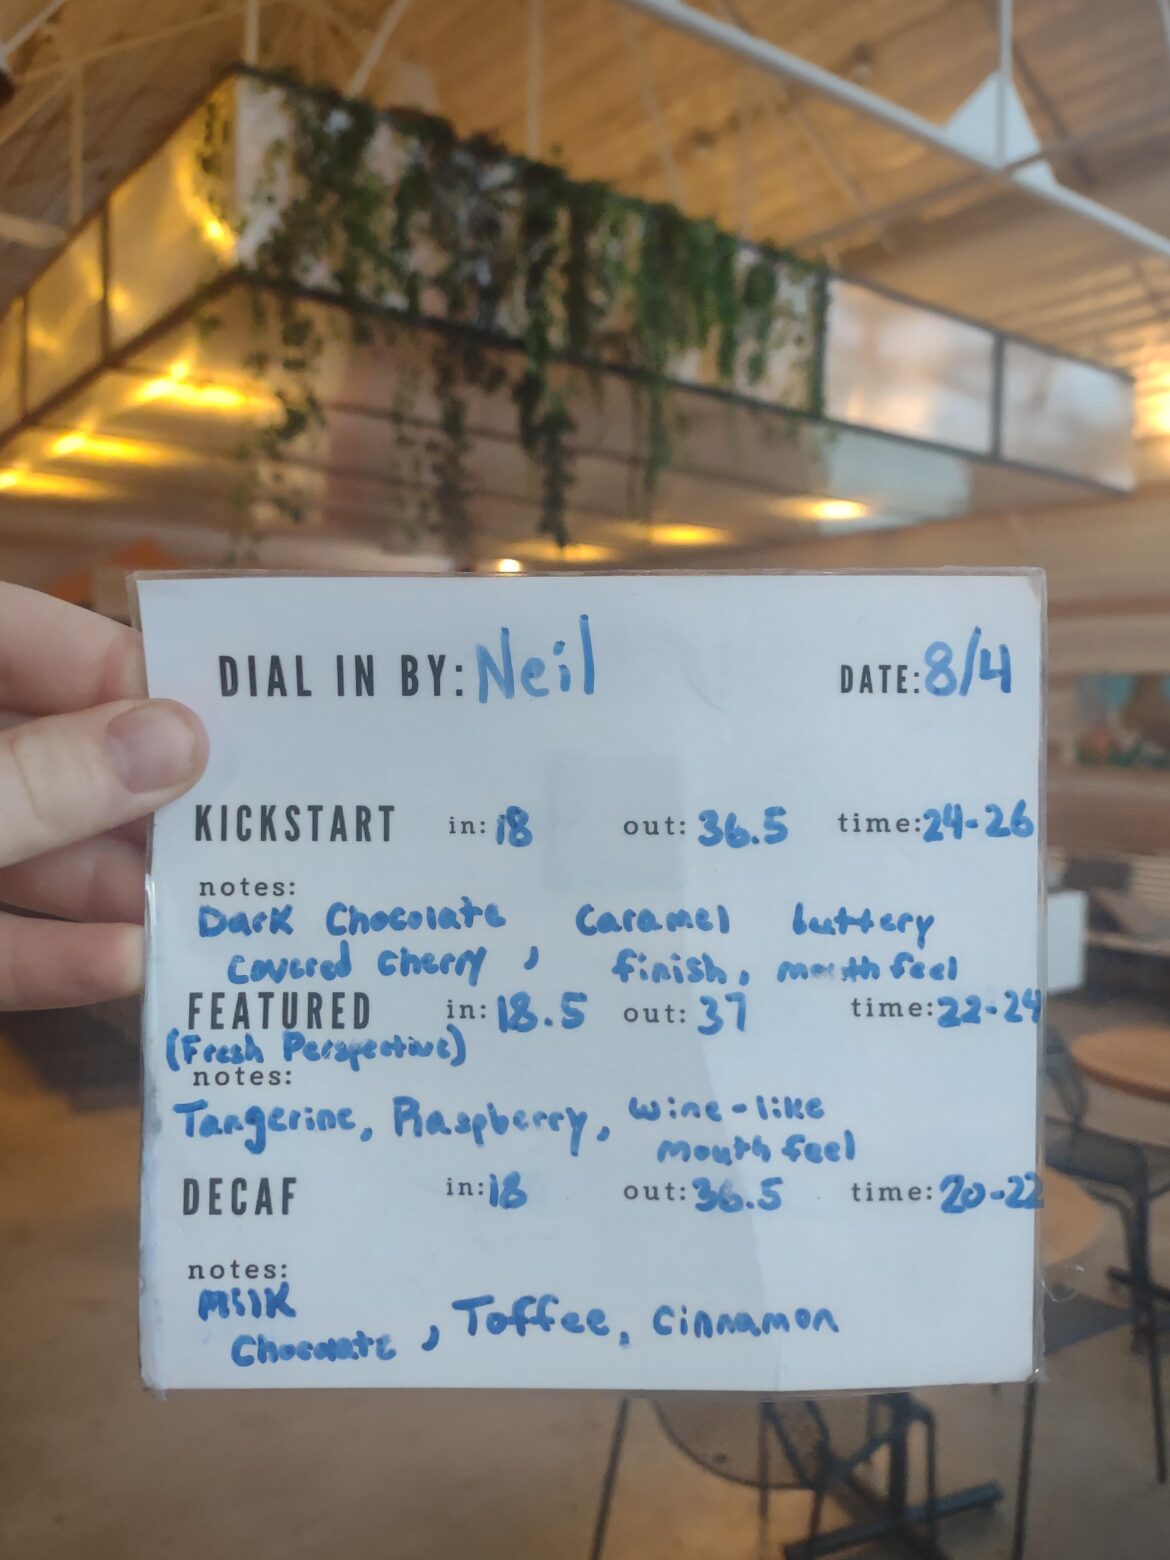 DIAL IN BY: Neil DATE: 8/4
KICKSTART in: 18 out: 36.5 time: 24-26
notes:
Dark Chocolate Caramel buttery
covered cherry, finish, mouth feel
FEATURED in: 18.5 out: 37 time: 22-24
(Fresh Perspective)
notes:
Tangerine, Raspberry, wine-like
mouth feel
DECAF in: 18 out: 36.5 time: 20-22
notes:
Milk
Chocolate, Toffee, Cinnamon